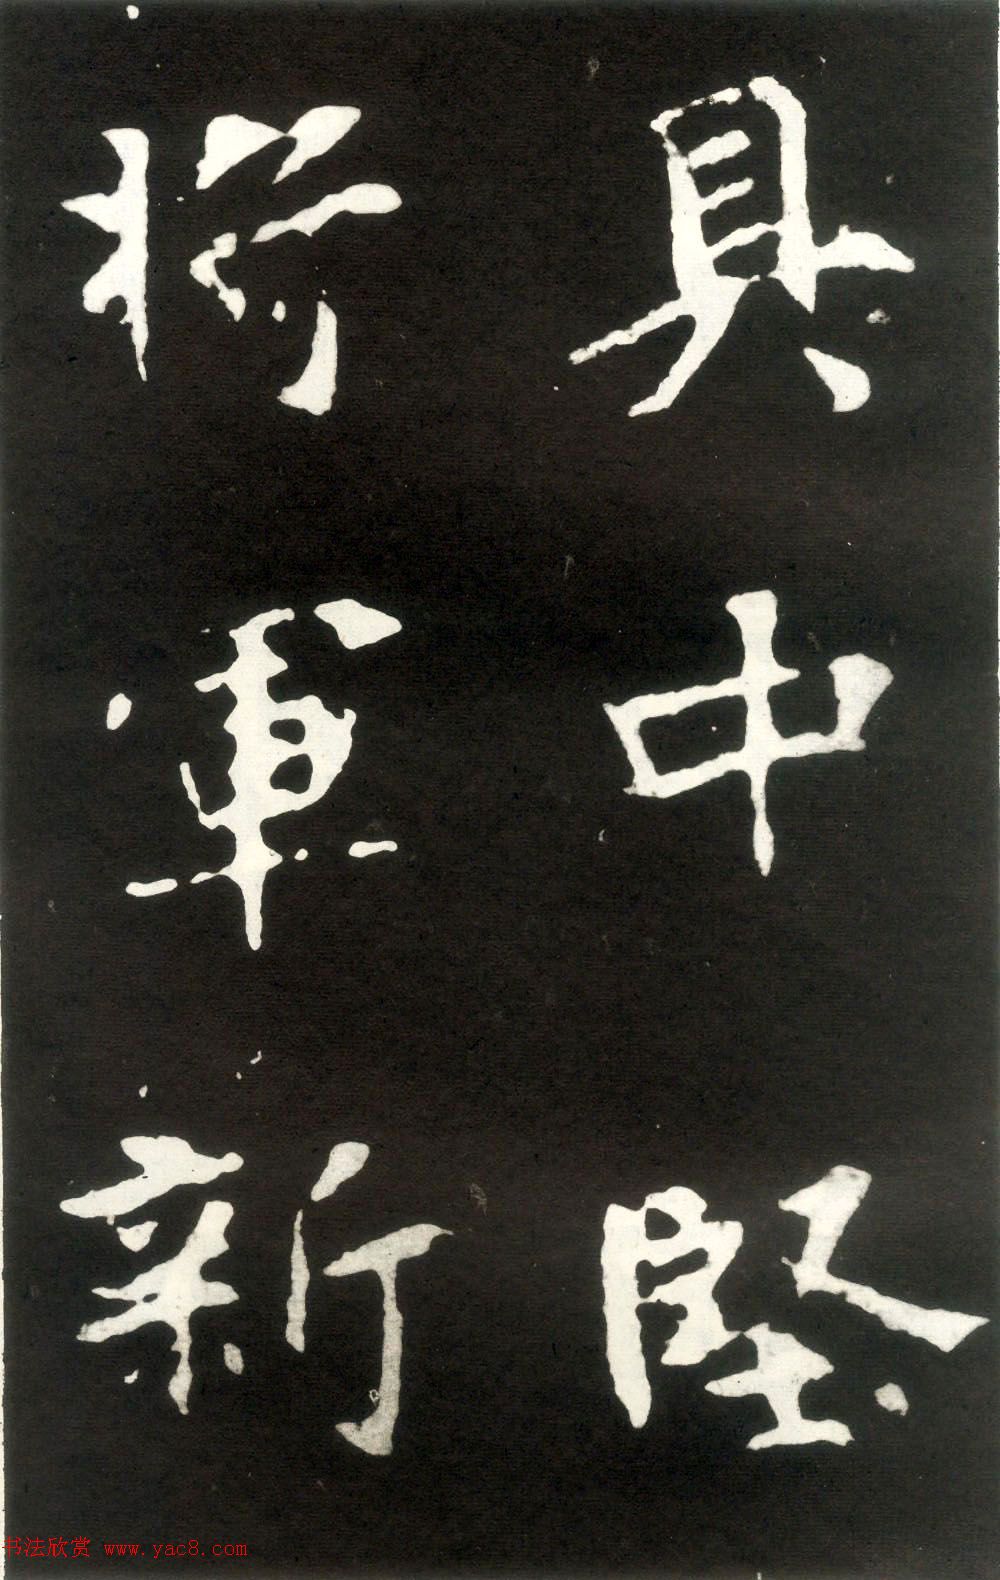 具中堅
將軍新
书法欣赏 www.yac8.com